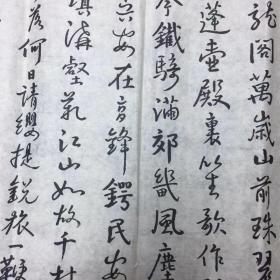 龍閣萬歲山前珠翠
蓬壺殿裏笙歌作
今鐵騎滿郊畿風塵
兵安在膏鋒鍔民安
填溝壑歎江山如故千村
落何日請纓提銳旅一鞭